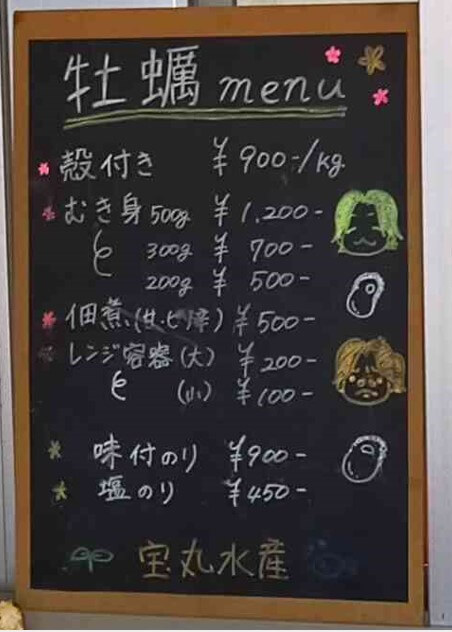 牡蠣 menu
殻付き ¥900-/kg
むき身 500g ¥1,200-
〃 300g ¥700-
200g ¥500-
佃煮(甘・ピリ辛) ¥500-
レンジ容器(大) ¥200-
〃 (小) ¥100-
味付のり ¥900-
塩のり ¥450-
宝丸水産